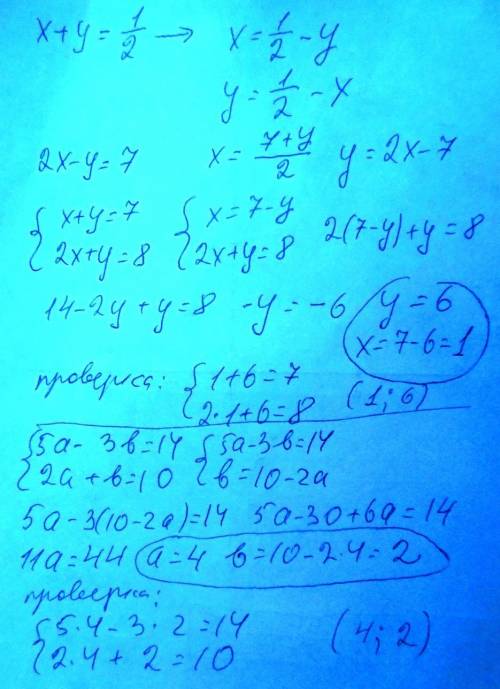 x+y=1/2 → x=1/2-y
y=1/2-x
2x-y=7 x=(7+y)/2 y=2x-7
{x+y=7 {x=7-y 2(7-y)+y=8
{2x+y=8 {2x+y=8
14-2y+y=8 -y=-6 y=6
x=7-6=1
проверка: {1+6=7
{2·1+6=8 (1; 6)
{5a-3b=14 {5a-3b=14
{2a+b=10 {b=10-2a
5a-3(10-2a)=14 5a-30+6a=14
11a=44 a=4 b=10-2·4=2
проверка:
{5·4-3·2=14 (4; 2)
{2·4+2=10